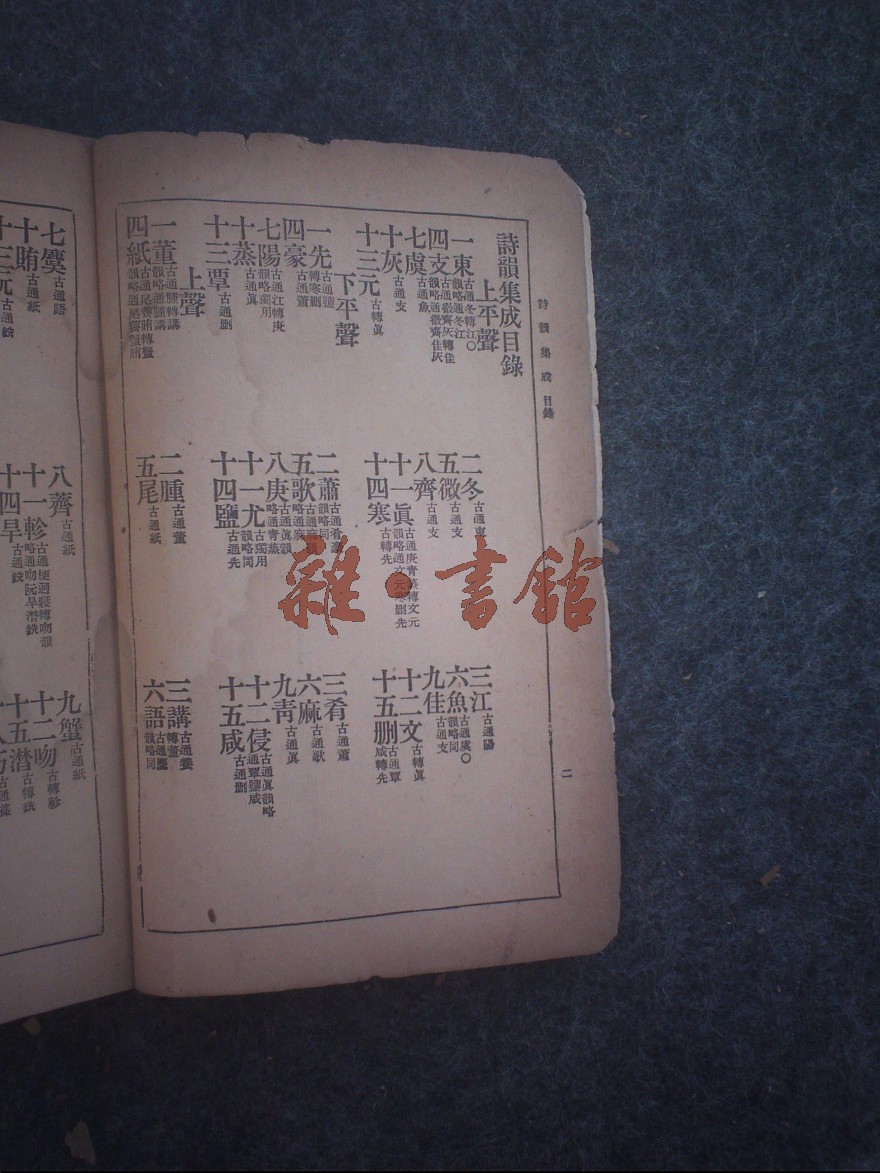 詩韻集成 目錄
二
詩韻集成目錄
上平聲
一東 古通冬轉江○韻略通冬江 二冬 古通東 三江 古通陽
四支 古通微齊灰轉佳韻略通微齊佳灰 五微 古通支 六魚 古通虞○韻略同
七虞 古通魚 八齊 古通支 九佳 古通支
十灰 古通支 十一眞 古通庚青蒸轉文元韻略通文元寒刪先 十二文 古轉眞
十三元 古轉眞 十四寒 古轉先 十五刪 古通覃咸轉先
下平聲
一先 古通鹽轉寒刪 二蕭 古通肴豪韻略同 三肴 古通蕭
四豪 古通蕭 五歌 古通麻韻略同 六麻 古通歌
七陽 古通江轉庚韻略獨用 八庚 古通眞韻略通青蒸 九靑 古通眞
十蒸 古通眞 十一尤 古獨用韻略同 十二侵 古通眞韻略通覃鹽咸
十三覃 古通刪 十四鹽 古通先 十五咸 古通刪
上聲
一董 古通腫轉講韻略通腫講 二腫 古通董 三講 古通養轉董
四紙 古通尾薺賄轉蟹韻略通尾薺蟹賄 五尾 古通紙 六語 古通麌韻略同
七麌 古通語 八薺 古通紙 九蟹 古通紙
十賄 古通紙 十一軫 古通梗迥寢轉吻韻略通吻阮旱潸銑 十二吻 古轉軫
十三阮 古通銑 十四旱 古通銑 十五潸 古轉銑
雜·書館